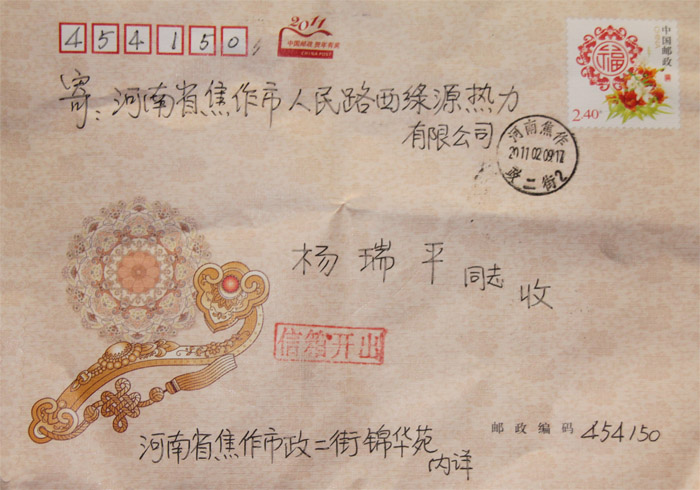 454150
2011
中国邮政 贺年有奖
CHINA POST
中国邮政
福
2.40元
寄:河南省焦作市人民路西绿源热力
有限公司
河南焦作
2011.02.09.17
政二街2
杨瑞平 同志 收
信箱开出
河南省焦作市政二街锦华苑
内详
邮政编码 454150